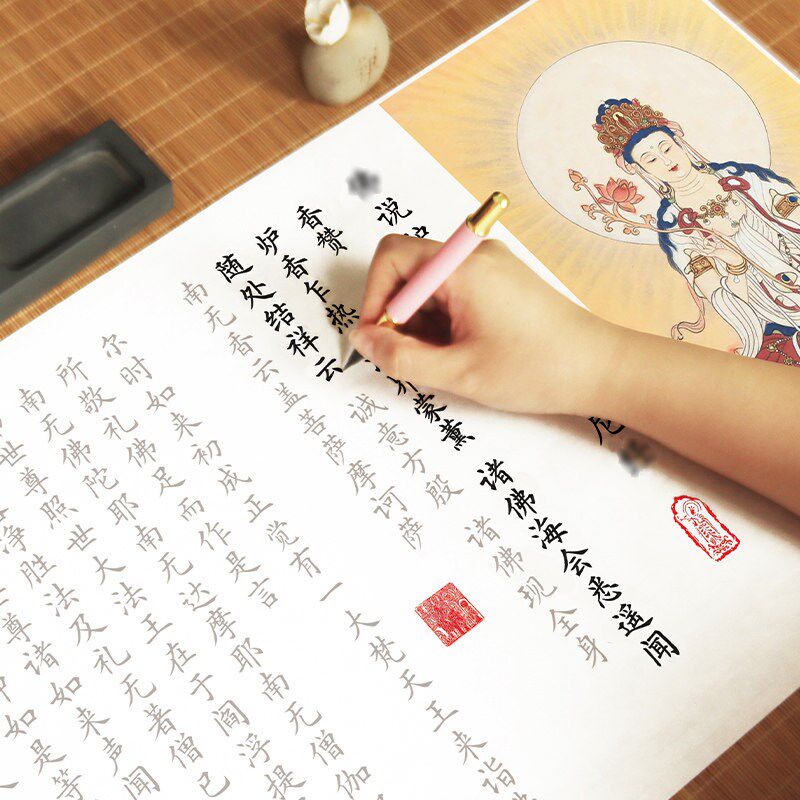 说 尼
香赞
炉香乍热 界蒙薰 诸佛海会悉遥闻
随处结祥云 诚意方殷 诸佛现全身
南无香云盖菩萨摩诃萨
尔时如来初成正觉有一大梵天王来诣
所敬礼佛足而作是言
南无佛陀耶南无达摩耶南无僧伽
世尊照世大法王在于阎浮提
净胜法及礼无著僧已
尊诸如来声闻
如是等